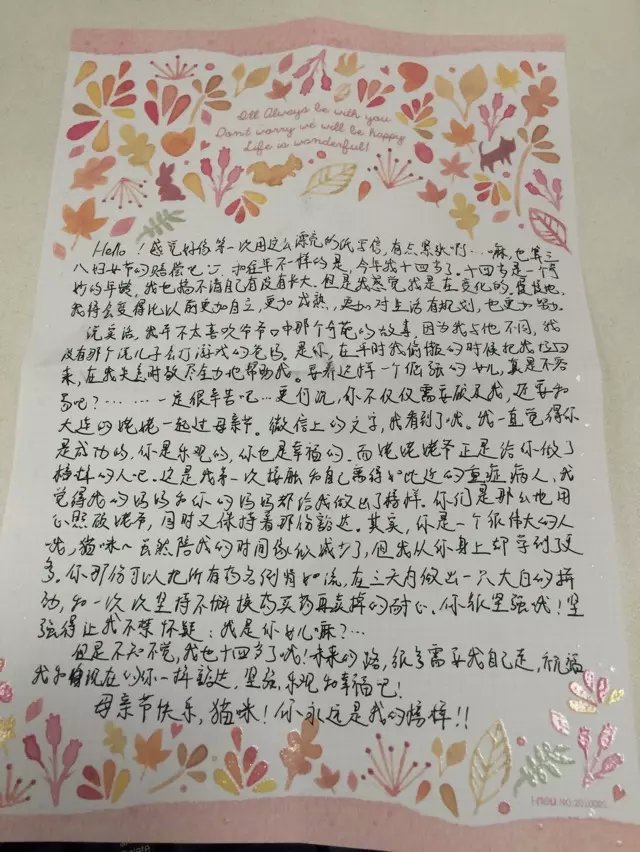 I'll Always be with you
Don't worry we will be happy
Life is wonderful!
Hello！感觉好像第一次用这么漂亮的纸写信，有点紧张啊…嘛，也算三
八妇女节的赔偿吧 和往年不一样的是，今年我十四岁了。十四岁是一个奇
妙的年龄，我也搞不清自己有没有长大。但是我感觉我是在变化的，慢慢地
我将会变得比以前更加自立，更加成熟，更加对生活有规划，也更加
说实话，我并不太喜欢爷爷口中那个奇葩的故事，因为我与他不同，我
没有那个说儿子去打游戏的爸妈。是你，在平时我偷懒的时候把我拉回
来，在我失意时教尽全力地帮助我。要养这样一个倔强的女儿，真是不容
易吧？……一定很辛苦吧…更何况，你不仅仅需要照顾我，还要和
大连的姥姥一起过母亲节。微信上的文字，我看到了哦。我一直觉得你
是成功的，你是乐观的，你也是幸福的。而姥姥姥爷正是给你做了
榜样的人吧。这是我第一次接触和自己离得如此近的重症病人，我
觉得我的妈妈和你的妈妈都给我做出了榜样。你们是那么地用
心照顾姥爷，同时又保持着那份豁达。其实，你是一个很伟大的人
哦，猫咪～虽然陪我的时间像似减少了，但我从你身上却学到了更
多。你那份可以把所有药名倒背如流，在三天内做出一只大白的行
动，和一次次坚持不懈换药买药再卖掉的耐心。你很坚强哦！坚
强得让我不禁怀疑：我是你女儿嘛？…
但是不知不觉，我也十四岁了哦！未来的路，很多需要我自己走，祝福
我和现在的你一样豁达，坚强，乐观和幸福吧！
母亲节快乐，猫咪！你永远是我的榜样！！